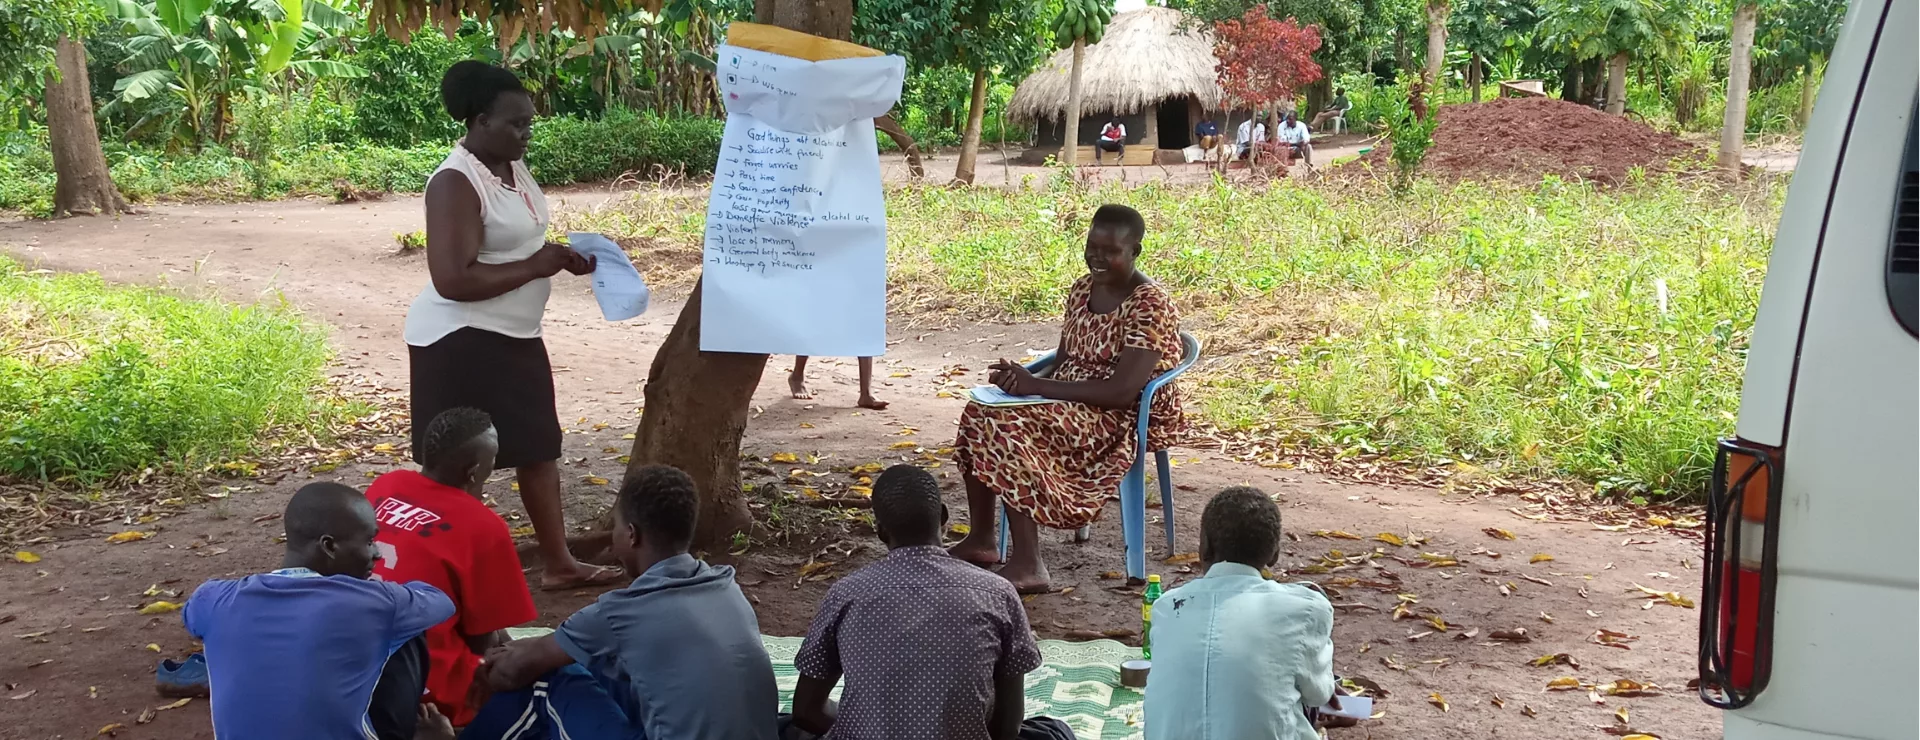 Good things abt alcohol use
→ Socialise with friends
→ forget worries
→ Pass time
→ Gain some confidence
→ Gain popularity
alcohol use
→ Domestic Violence
→ Violent
→ loss of memory
→ General body weakness
→ Wastage of resources